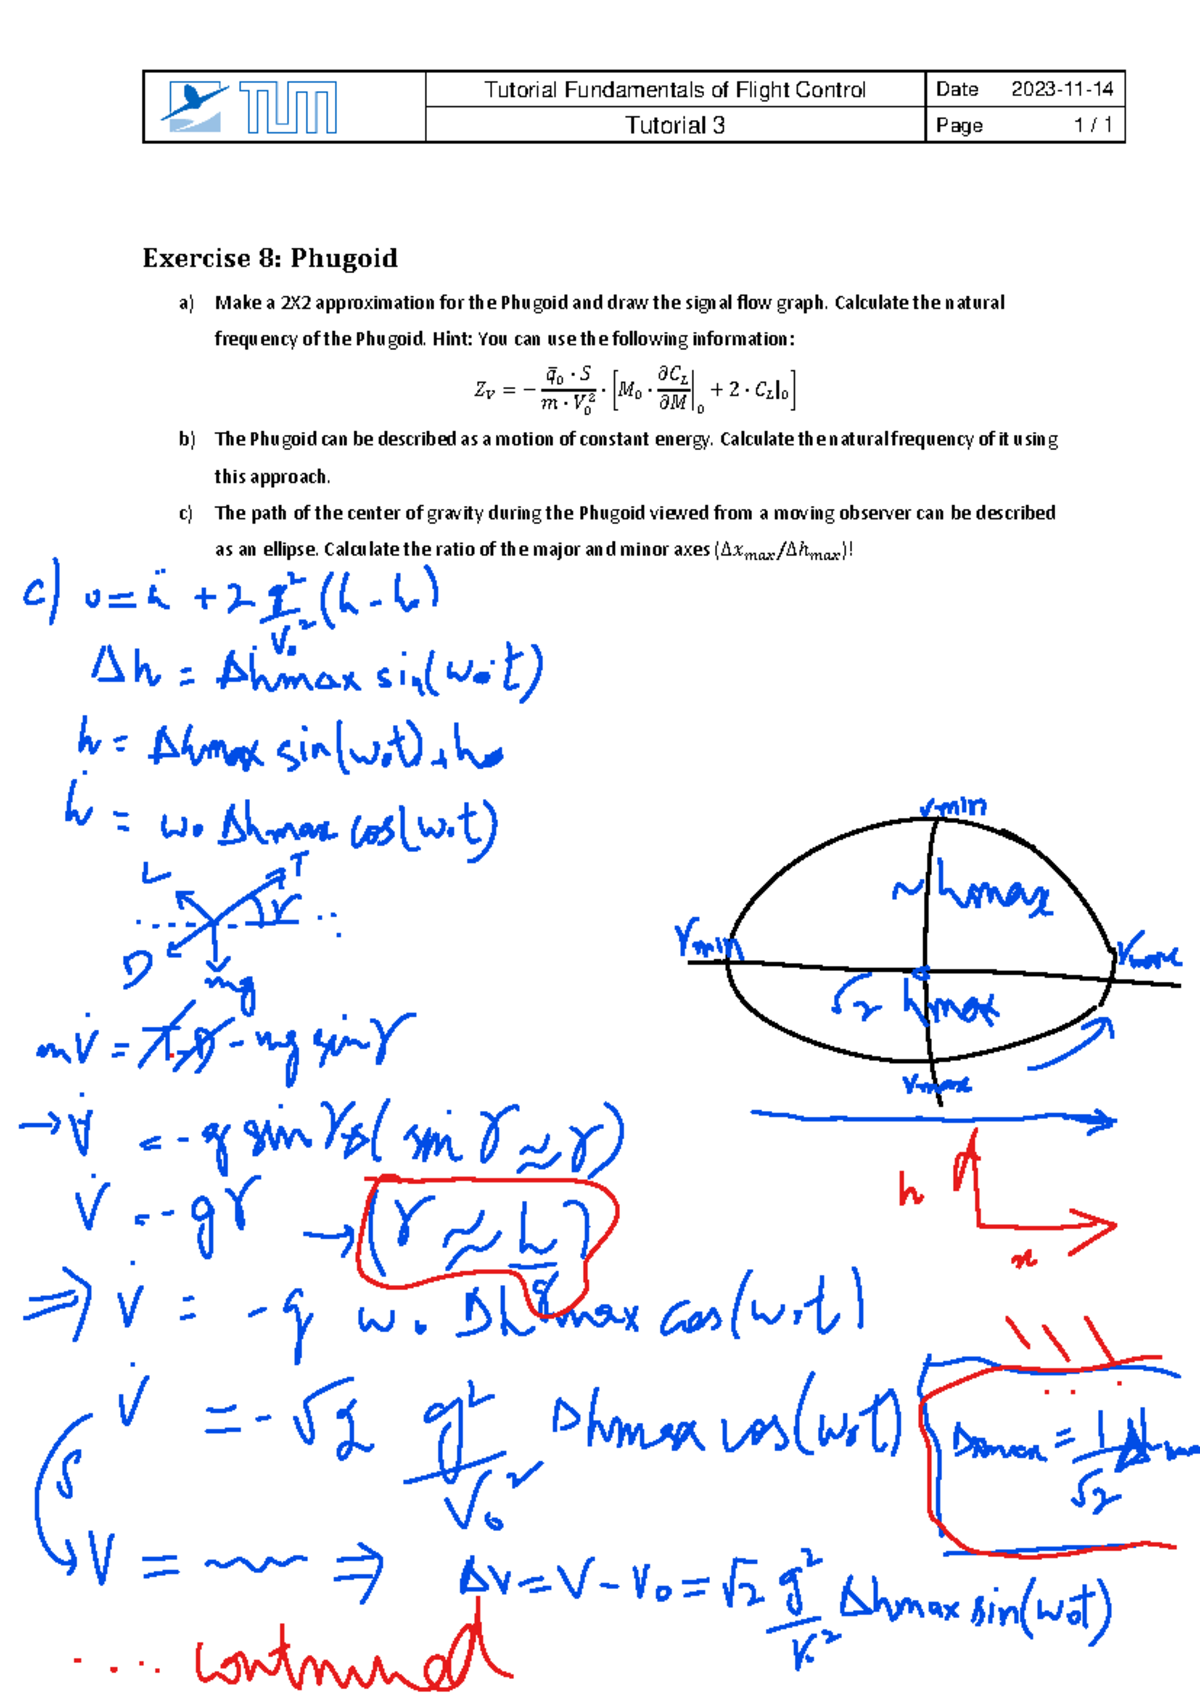 TUM
Tutorial Fundamentals of Flight Control
Date 2023-11-14
Tutorial 3
Page 1 / 1
Exercise 8: Phugoid
a) Make a 2X2 approximation for the Phugoid and draw the signal flow graph. Calculate the natural
frequency of the Phugoid. Hint: You can use the following information:
Z_V = − (q̄₀ · S)/(m · V₀²) · [M₀ · ∂C_L/∂M|₀ + 2 · C_L|₀]
b) The Phugoid can be described as a motion of constant energy. Calculate the natural frequency of it using
this approach.
c) The path of the center of gravity during the Phugoid viewed from a moving observer can be described
as an ellipse. Calculate the ratio of the major and minor axes (Δx_max/Δh_max)!
c) 0 = ḧ + 2 g²/V₀² (h - h₀)
Δh = Δhmax sin(w₀t)
h = Δhmax sin(w₀t) + h₀
ḣ = w₀ Δhmax cos(w₀t)
L T
γ
D
mg
vmin
~ hmax
Vmin
Vmax
√2 hmax
vmax
mV̇ = T-D - mg sinγ
→ V̇ = -g sin γ (sin γ ≈ γ)
V̇ = -gγ → (γ ≈
h
x
⇒ V̇ = -g w₀ Δhmax cos(w₀t)
V̇ = -√2 g²/V₀² Δhmax cos(w₀t)
Δxmax = 1/√2
∫
V = ⇒ ΔV = V - V₀ = √2 g²/V₀² Δhmax sin(w₀t)
.... continued